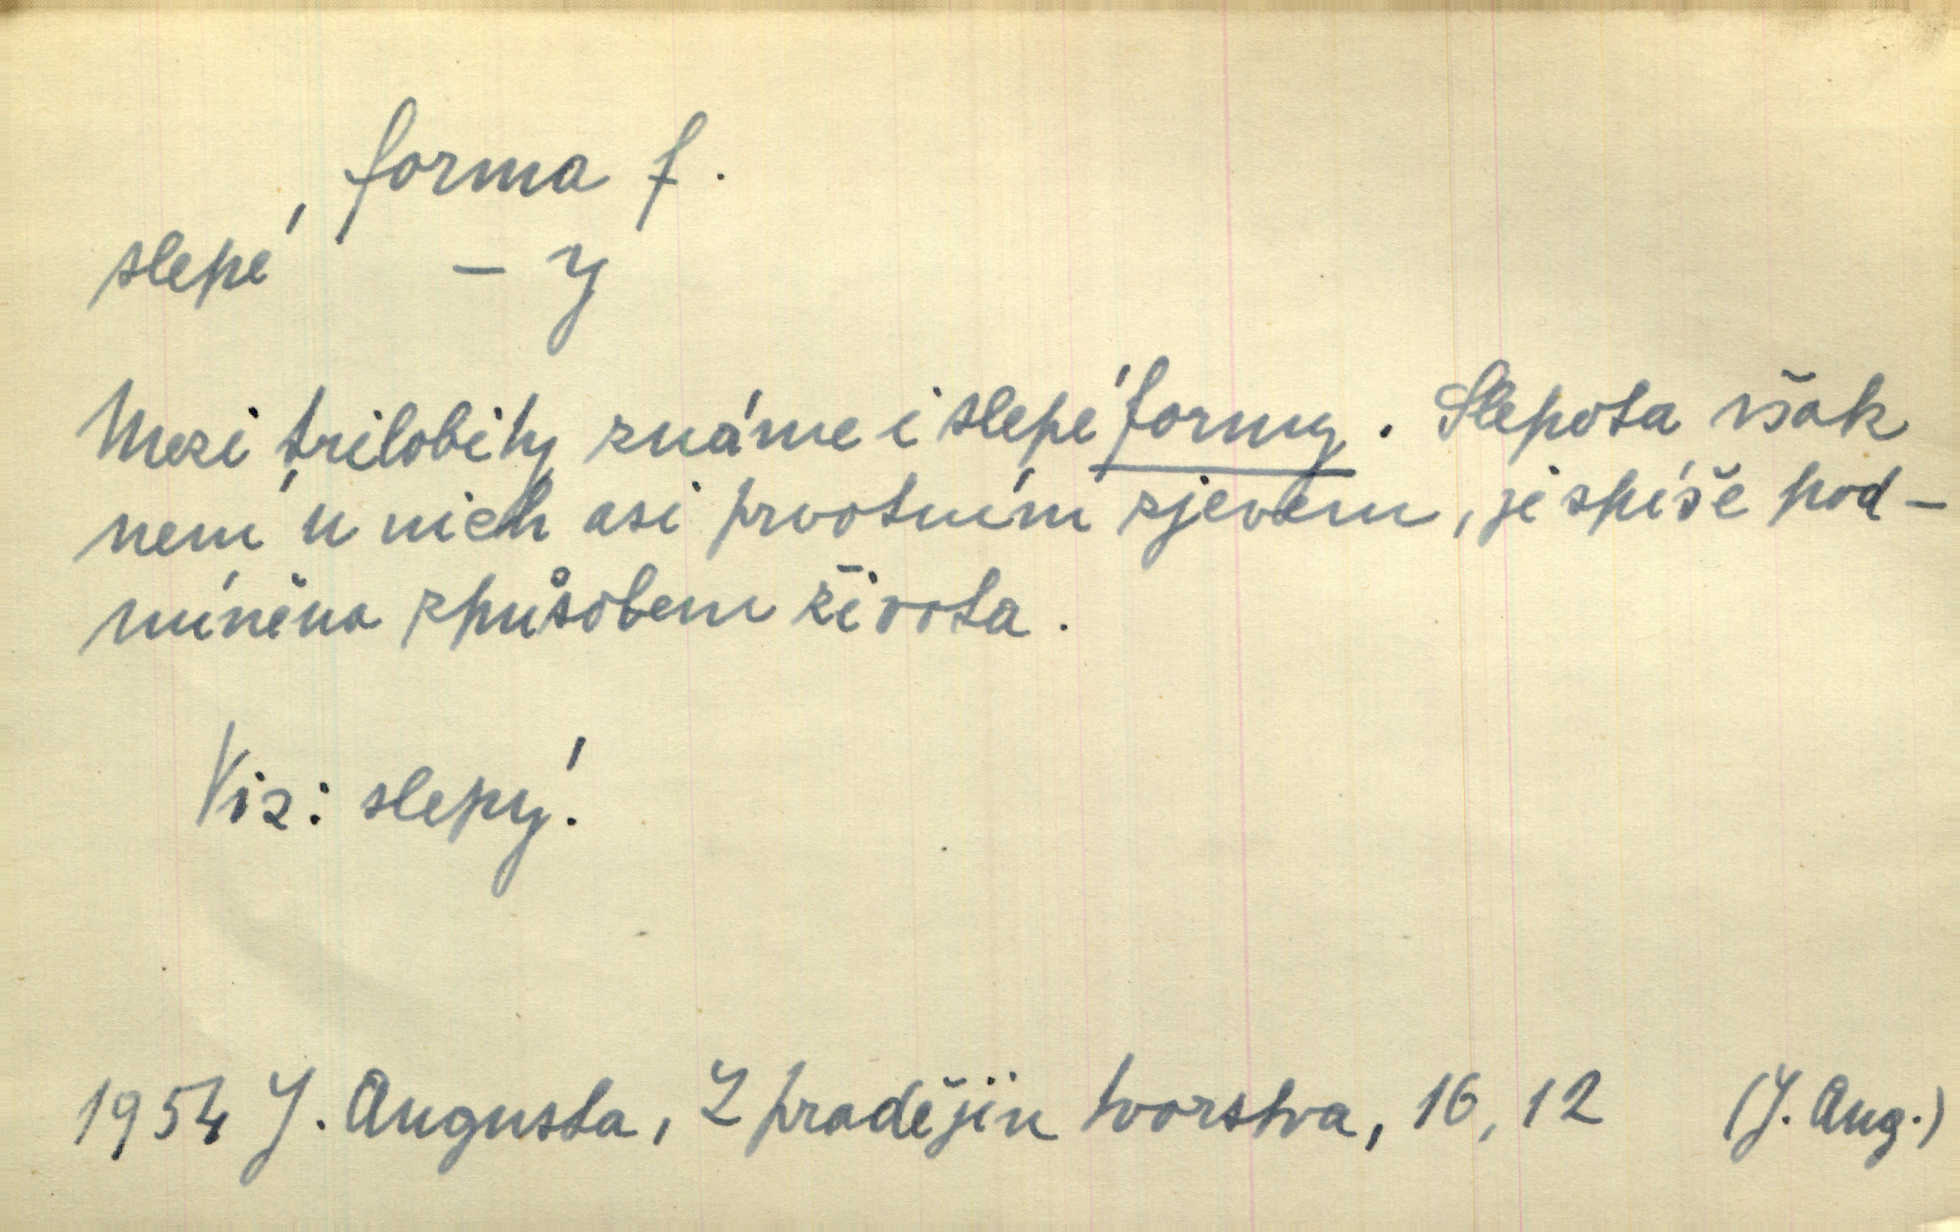 forma f.
slepé, – y
Mezi trilobity známe i slepé formy. Slepota však
není u nich asi prvotním zjevem, je spíše pod-
míněna způsobem života.
Viz: slepý!
1954 J. Augusta, Z pradějin tvorstva, 16, 12 (J. Aug.)